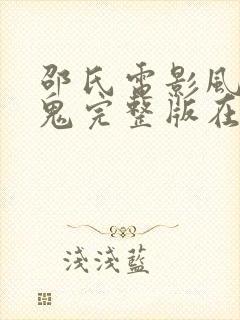 邵氏電影風
鬼完整版在
淺淺藍